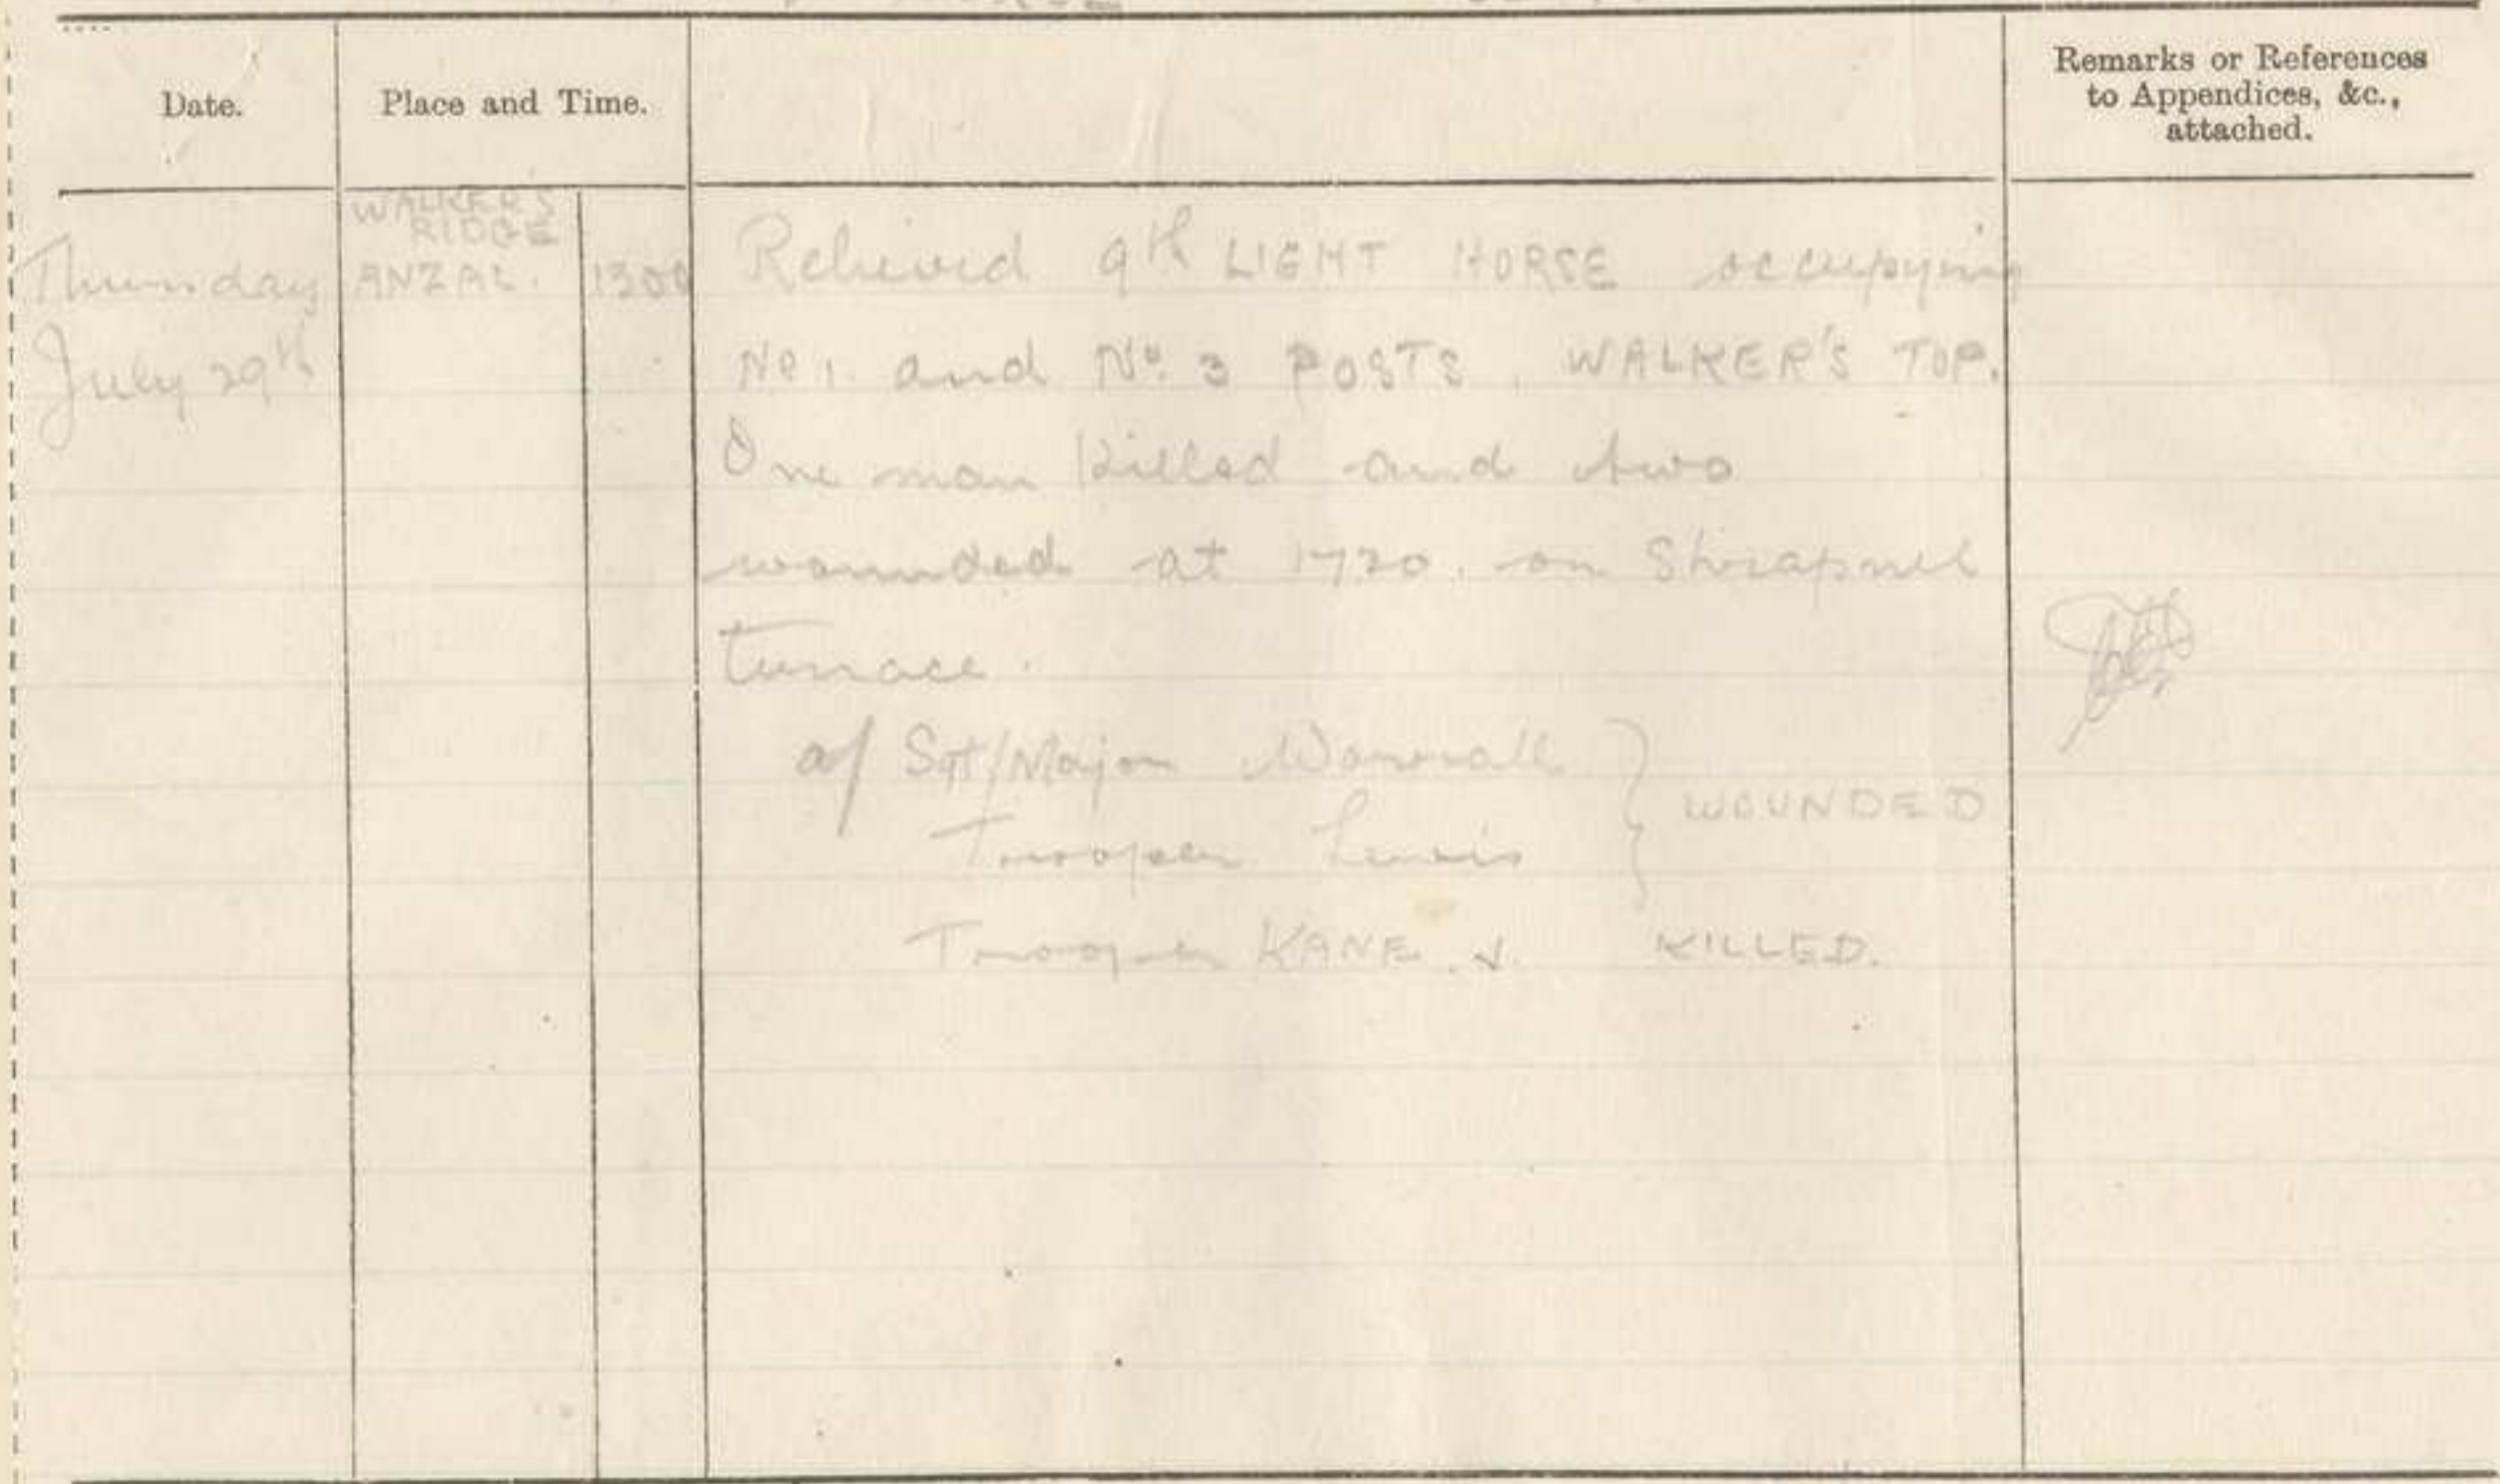 Date.
Place and Time.
Remarks or References
to Appendices, &c.,
attached.
WALKER'S
RIDGE
Thursday ANZAC. 1300 Relieved 9th LIGHT HORSE occupying
July 29th No 1. and No. 3 POSTS, WALKER'S TOP.
One man killed and two
wounded at 1720. on Shrapnel
terrace.
a/ Sgt/Major Worrall
WOUNDED
Trooper Lewis
Trooper KANE. J. KILLED.